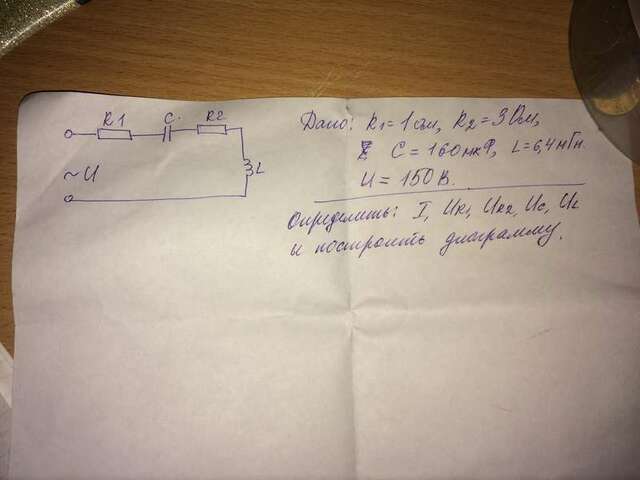 R1 C R2
~U
L
Дано: R1=1 Ом, R2=3 Ом,
C = 160 мкФ, L=6,4 мГн.
U = 150 В.
Определить: I, UR1, UR2, UC, UL
и построить диаграмму.